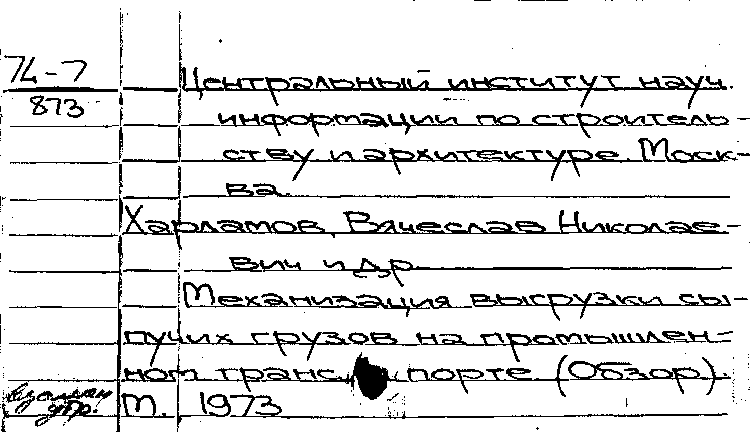 74-7
873
Центральный институт науч.
информации по строитель-
ству и архитектуре. Моск-
ва.
Харламов, Вячеслав Николае-
вич и др.
Механизация выгрузки сы-
пучих грузов на промышлен-
ном транспорте (Обзор).
М. 1973